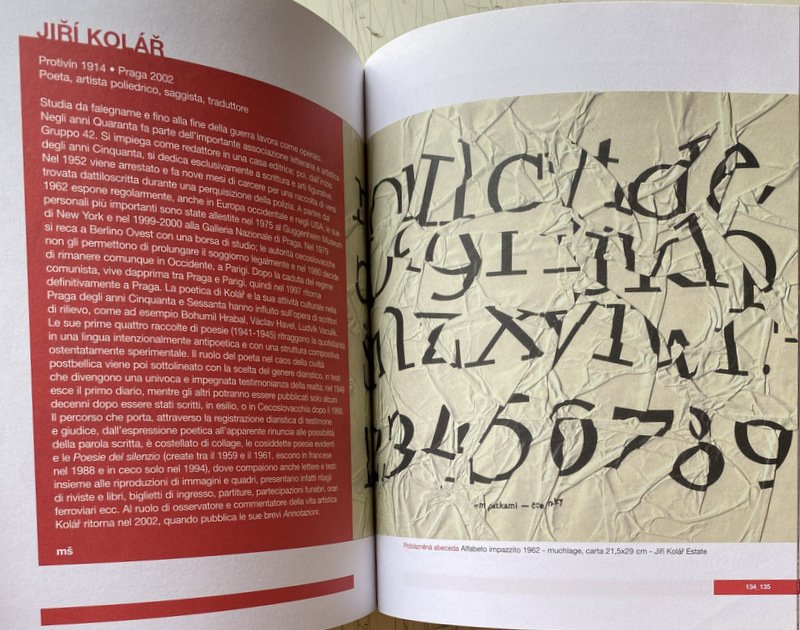 JIŘÍ KOLÁŘ
Protivín 1914 • Praga 2002
Poeta, artista poliedrico, saggista, traduttore
Studia da falegname e fino alla fine della guerra lavora come operaio.
Negli anni Quaranta fa parte dell'importante associazione letteraria e artistica
Gruppo 42. Si impiega come redattore in una casa editrice; poi, dall'inizio
degli anni Cinquanta, si dedica esclusivamente a scrittura e arti figurative.
Nel 1952 viene arrestato e fa nove mesi di carcere per una raccolta di versi
trovata dattiloscritta durante una perquisizione della polizia. A partire dal
1962 espone regolarmente, anche in Europa occidentale e negli USA; le sue
personali più importanti sono state allestite nel 1975 al Guggenheim Museum
di New York e nel 1999-2000 alla Galleria Nazionale di Praga. Nel 1979
si reca a Berlino Ovest con una borsa di studio; le autorità cecoslovacche
non gli permettono di prolungare il soggiorno legalmente e nel 1980 decide
di rimanere comunque in Occidente, a Parigi. Dopo la caduta del regime
comunista, vive dapprima tra Praga e Parigi, quindi nel 1997 ritorna
definitivamente a Praga. La poetica di Kolář e la sua attività culturale nella
Praga degli anni Cinquanta e Sessanta hanno influito sull'opera di scrittori
di rilievo, come ad esempio Bohumil Hrabal, Václav Havel, Ludvík Vaculík.
Le sue prime quattro raccolte di poesie (1941-1945) ritraggono la quotidianità
in una lingua intenzionalmente antipoetica e con una struttura compositiva
ostentatamente sperimentale. Il ruolo del poeta nel caos della civiltà
postbellica viene poi sottolineato con la scelta del genere diaristico, in testi
che divengono una univoca e impegnata testimonianza della realtà; nel 1948
esce il primo diario, mentre gli altri potranno essere pubblicati solo alcuni
decenni dopo essere stati scritti, in esilio, o in Cecoslovacchia dopo il 1990.
Il percorso che porta, attraverso la registrazione diaristica di testimone
e giudice, dall'espressione poetica all'apparente rinuncia alle possibilità
della parola scritta, è costellato di collage, le cosiddette poesie evidenti
e le Poesie del silenzio (create tra il 1959 e il 1961, escono in francese
nel 1988 e in ceco solo nel 1994), dove compaiono anche lettere e testi
insieme alle riproduzioni di immagini e quadri, presentano infatti ritagli
di riviste e libri, biglietti di ingresso, partiture, partecipazioni funebri, orari
ferroviari ecc. Al ruolo di osservatore e commentatore della vita artistica
Kolář ritorna nel 2002, quando pubblica le sue brevi Annotazioni.
mš
3 4 5 6 7 8 9
Poblázněná abeceda Alfabeto impazzito 1962 - muchlage, carta 21,5x29 cm - Jiří Kolář Estate
134_135